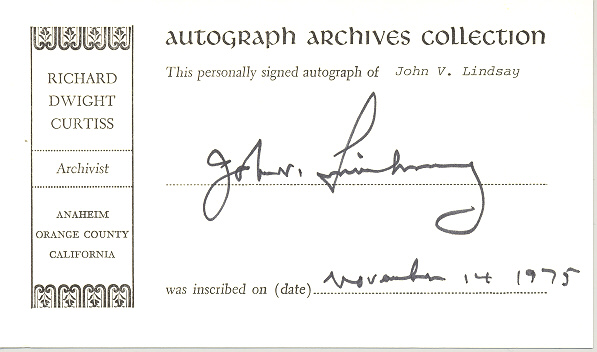 AUTOGRAPH ARCHIVES COLLECTION
This personally signed autograph of John V. Lindsay
John V. Lindsay
was inscribed on (date) November 14 1975
RICHARD
DWIGHT
CURTISS
Archivist
ANAHEIM
ORANGE COUNTY
CALIFORNIA